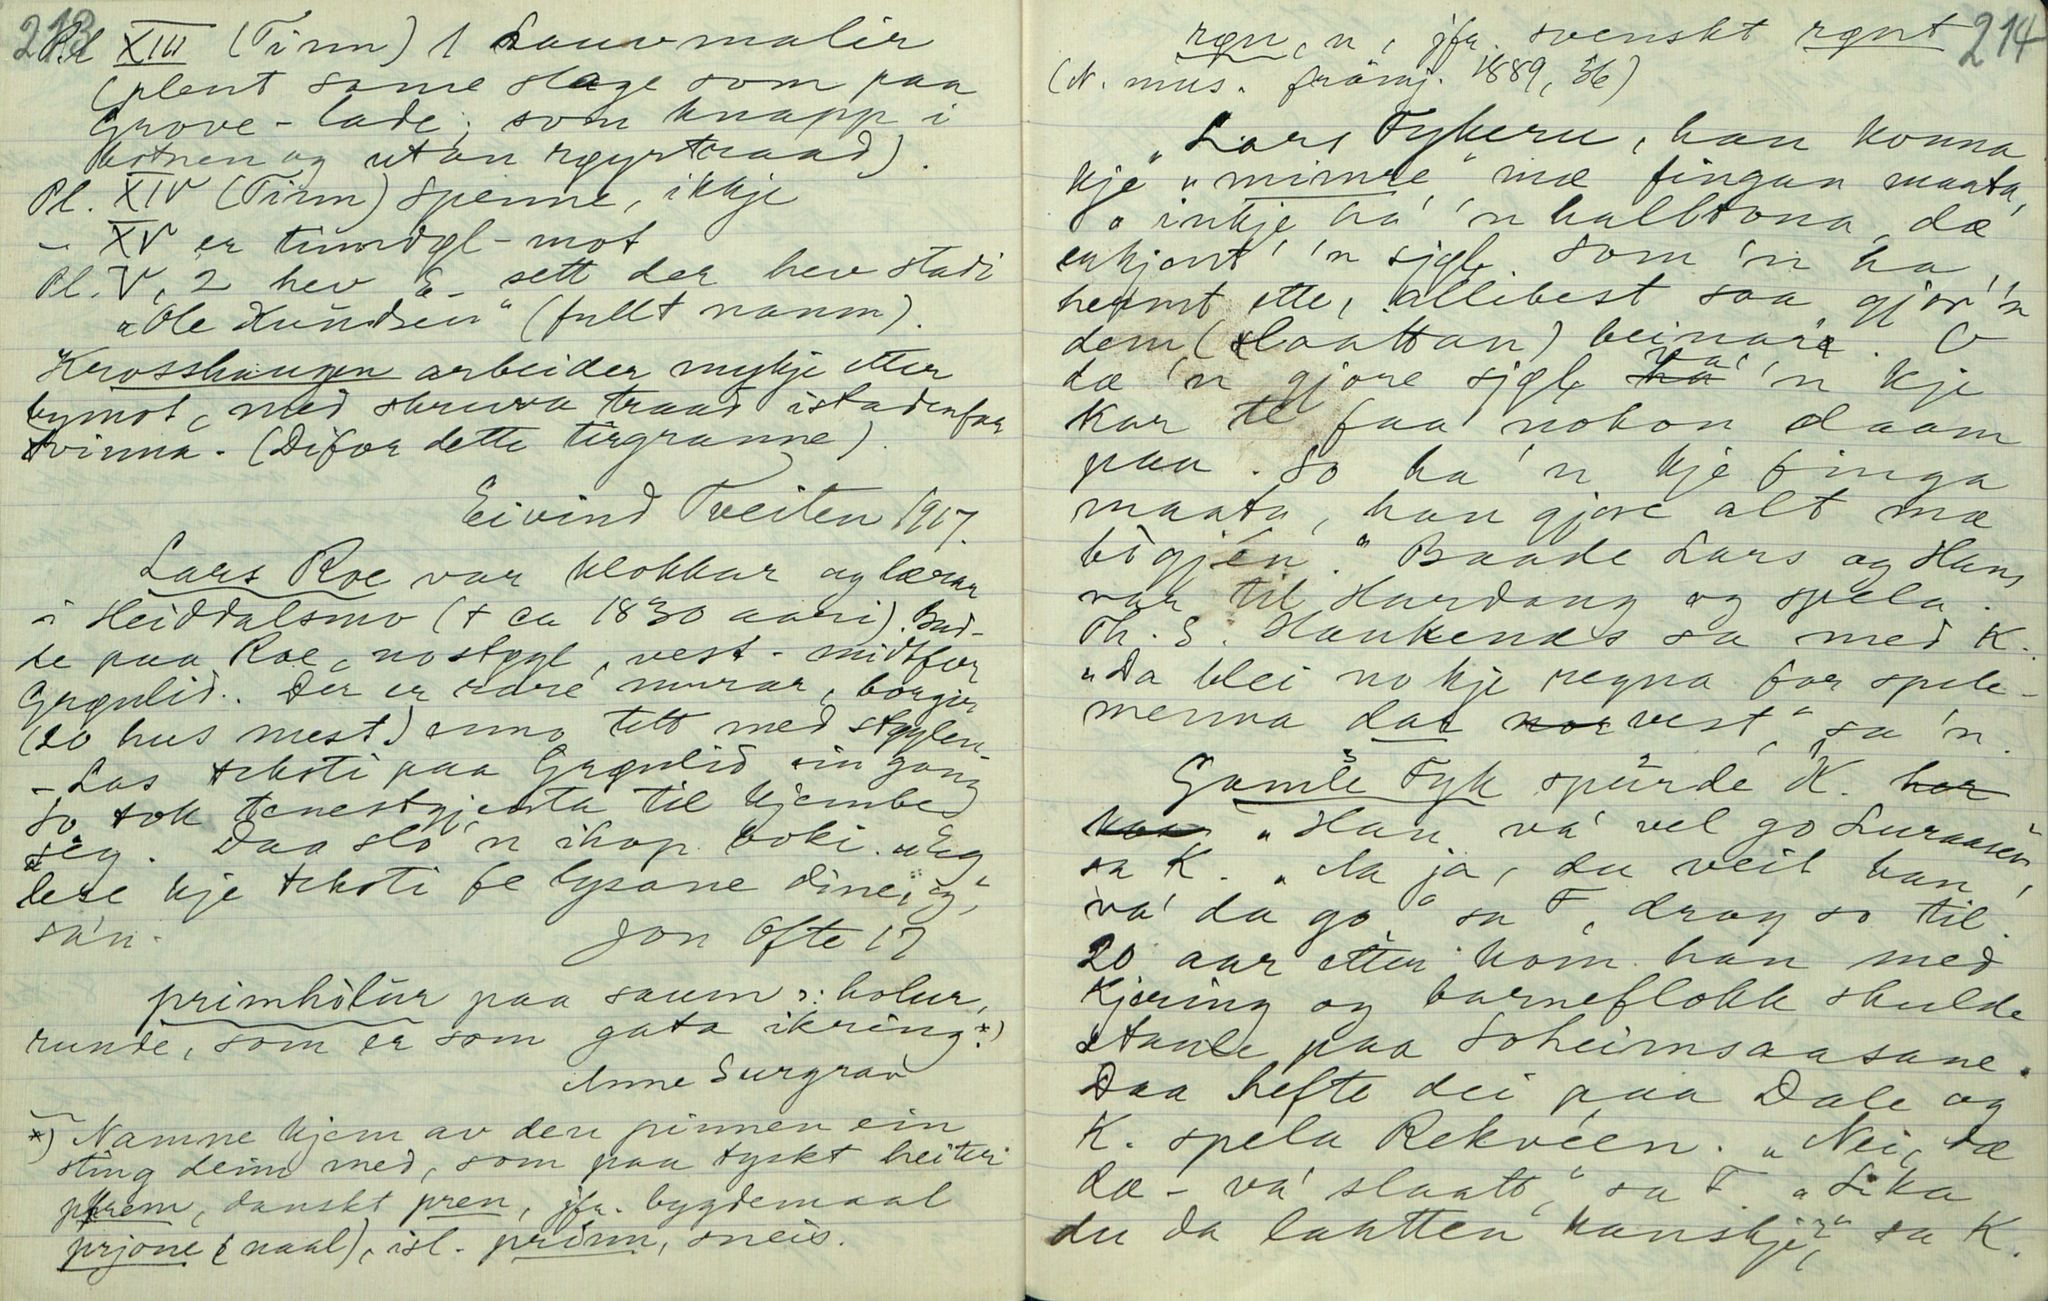 213
Pl XIII (Tinn) 1 Lauvmalir
(plent same slage som paa
Grove-lade, som knapp i
botnen og utan røyrtraad).
Pl. XIV (Tinn) spenne, ikkje
– XV er
Pl. V, 2 hev E. sett der hev stadi
"Ole Knudsen" (fullt namn).
Krosshaugen arbeider mykje etter
bymot, med skruva traad istadenfor
tvinna. (Difor dette tirgranne).
Eivind Tveiten 1917.
Lars Roe var klokkar og lærar
i Heiddalsmo (+ ca 1830 aari). Bud-
de paa Roe, no støyl, vest - midtfor
Grønlid. Der er rare murar, borgir
(20 hus mest) enno tett med støylen.
– Las teksti paa Grønlid ein gong
so tok tenestgjenta til kjembe
seg. Daa slo 'n ihop boki. "Eg
lese kje teksti fe lysane dine, eg,"
sa'n.
Jon Ofte 17
primhòlùr paa saum ɔ: holur,
runde, som er som gata ikring.*)
Anne Surgrav
*) Namne kjem av den pinnen ein
sting deim med, som paa tyskt heiter
pfrem, danskt pren, jfr. bygdemaal
prjone (naal), isl. prim, sneis.
214
røn, n, jfr. svenskt rønt
(N. mus. främj. 1889, 36)
"Lars Fykeru, han konna
kje "mimre" mæ fingan maata,
o inkje há 'n halltona, dæ
enkjent' 'n sjøl som 'n ha
hermt ette, allibest saa gjor' 'n
dem (slaattan) beinare. O
dæ 'n gjore sjøl va' 'n kje
kar te faa nokon daam
paa. So ha 'n kje finga
maata, han gjore alt mæ
bògjén." Baade Lars og Hans
var til Hardang og spela.
Th. S. Haukenæs sa med K.
"Da blei no kje regna for spele-
menna dar vest," sa 'n.
Gamle Fyk spurde K. har
"Han vá vel go Luraasen,
sa K. "Aa ja, du veit han
vá da go," sa F, drog so til.
20 aar etter kom han med
kjering og barneflokk skulde
stanse paa Soheimsaasane.
Daa hefte dei paa Dale og
K. spela Rekvéen. "Nei, dæ
dæ - vá slaatt," sa F. "Lika
du da laatten kanskje," sa K.